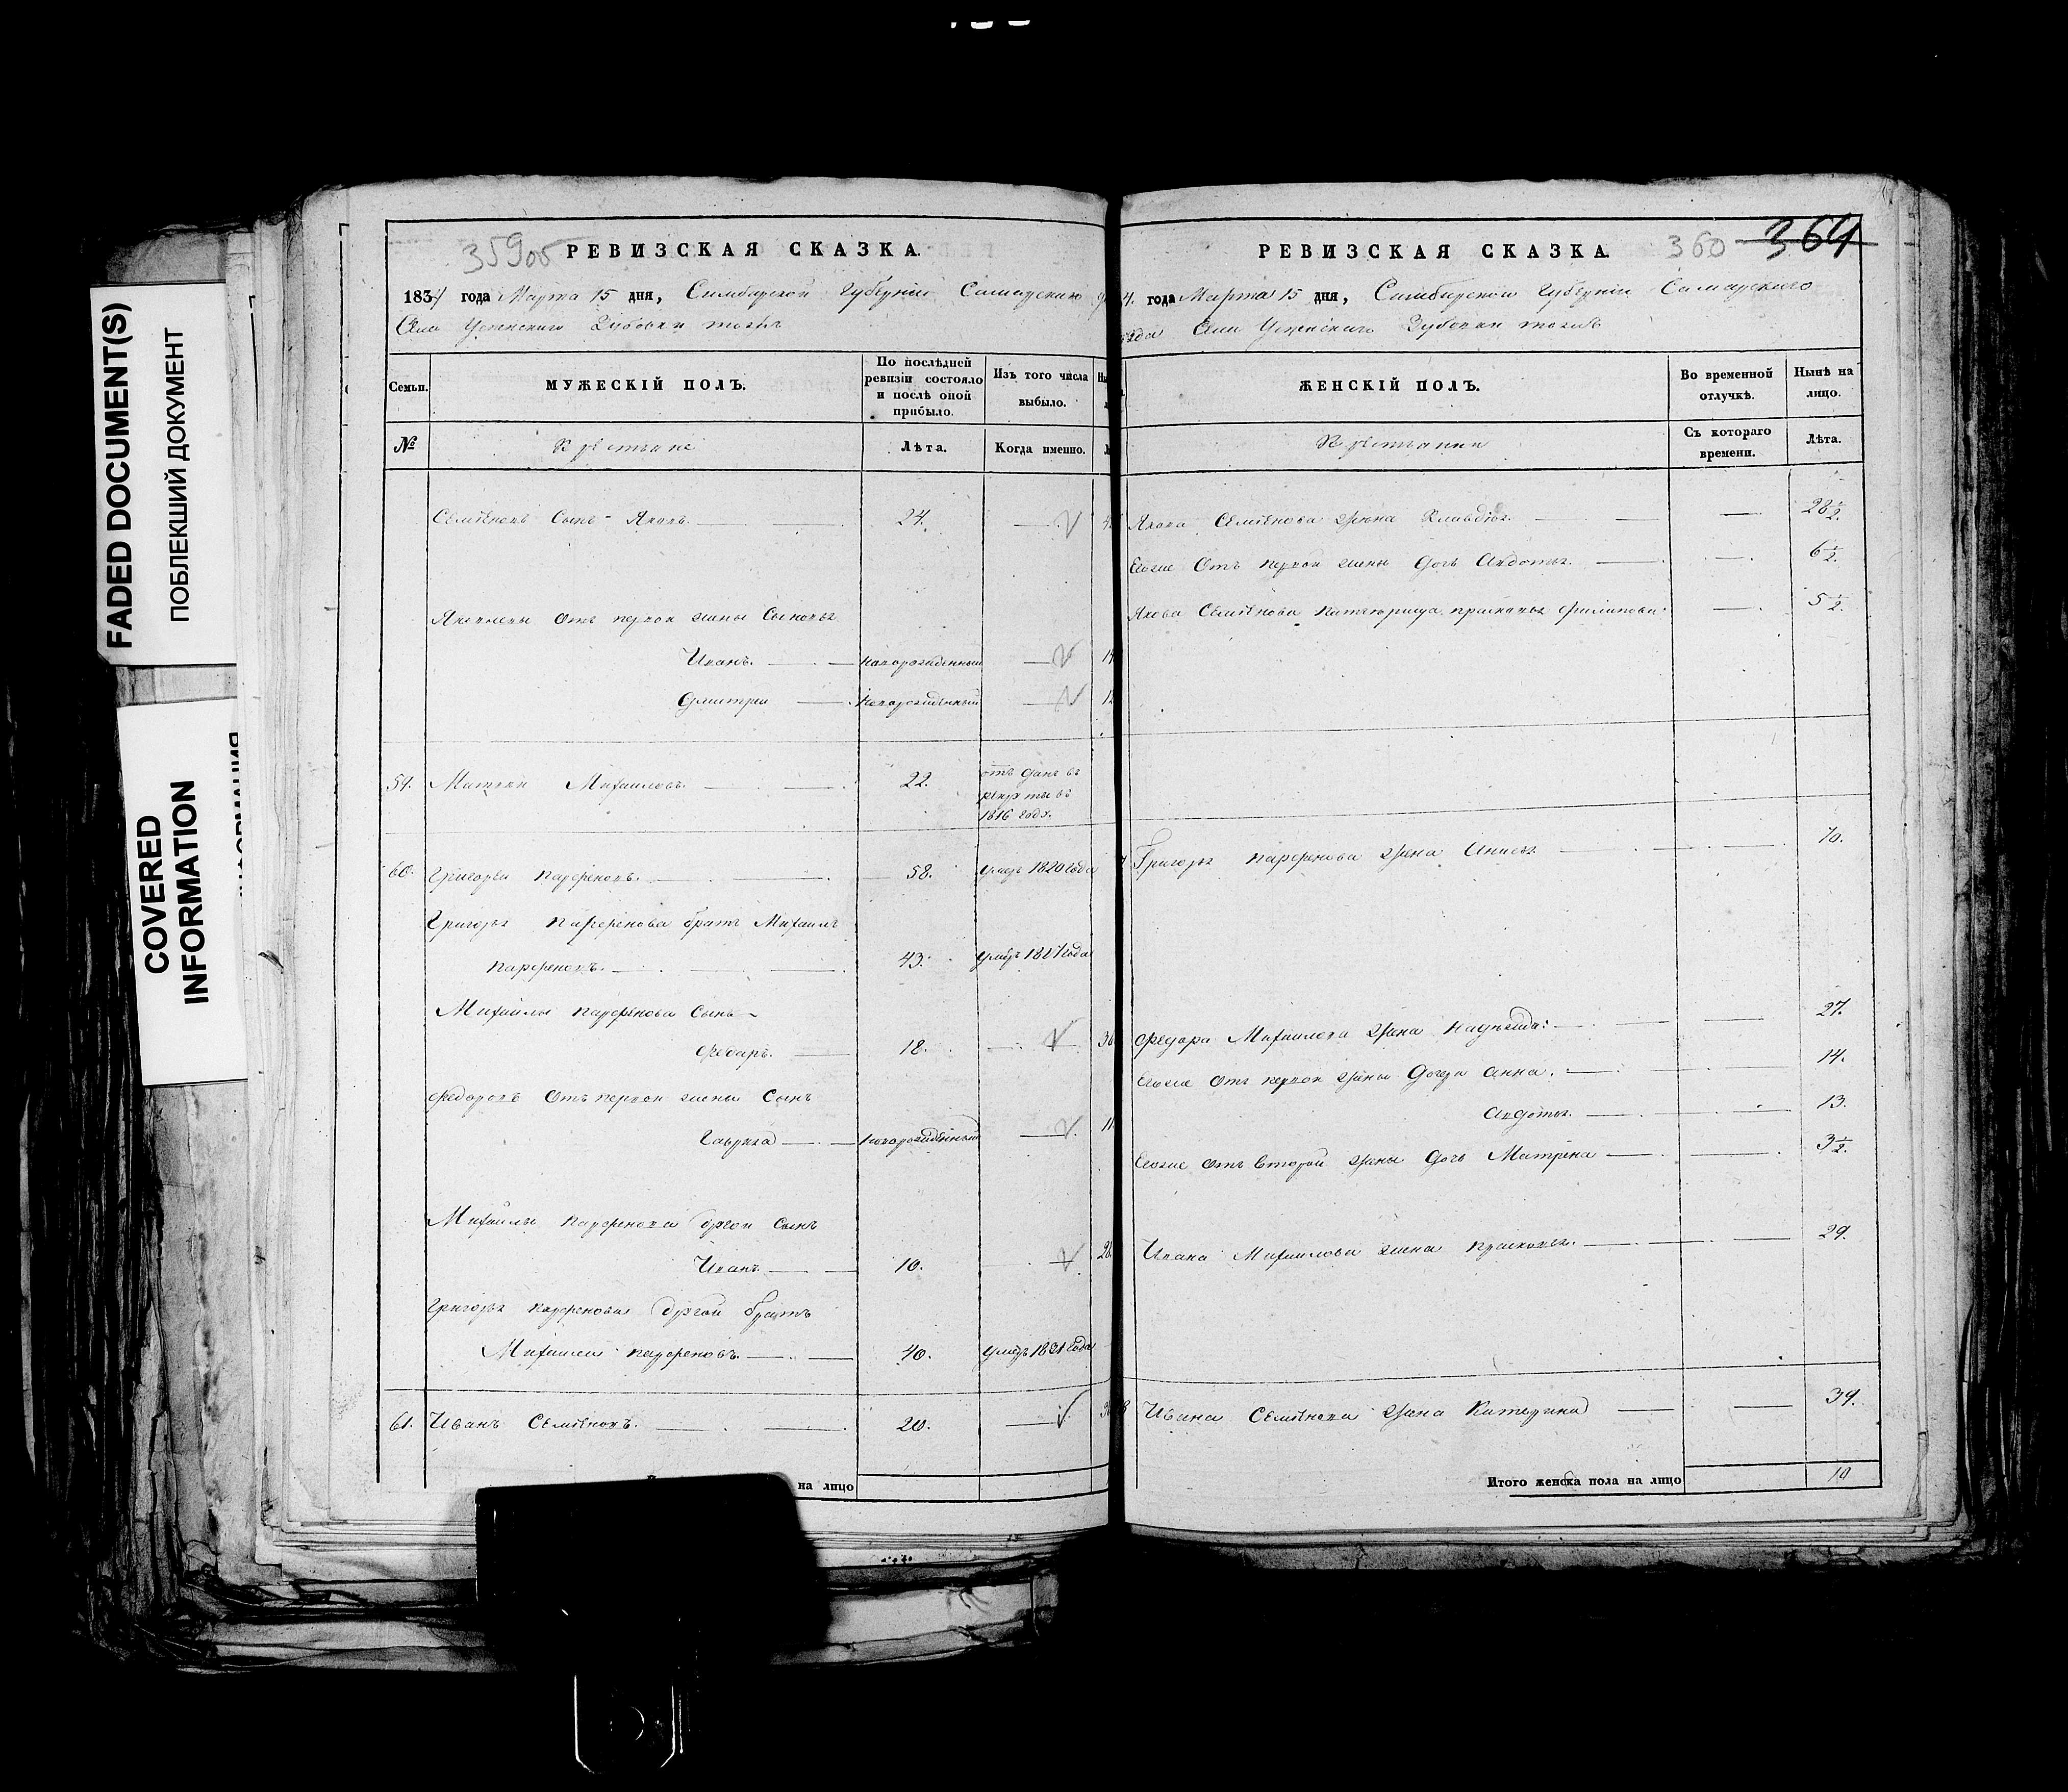 FADED DOCUMENT(S)
ПОБЛЕКШИЙ ДОКУМЕНТ
COVERED
INFORMATION
359об РЕВИЗСКАЯ СКАЗКА.
1834 года Марта 15 дня, Симбирской Губернии Самарскаго
Села Успенскаго Зубовки тожъ
Семьи. МУЖЕСКІЙ ПОЛЪ. По послѣдней ревизіи состояло и послѣ оной прибыло. Изъ того числа выбыло.
№ Крестьяне Лѣта. Когда именно.
Семеновъ Сынъ Яковъ. 24.
Яковлевы Отъ первой жены Сыновья
Иванъ. новорожденный
Дмитрей новорожденный
59. Матвей Михаиловъ. 22. отъ данъ въ
рекруты въ
1816 году.
60. Григорей Парфеновъ. 58. умеръ 1820 года
Григорья Парфенова братъ Михаилъ
Парфеновъ. 43.
Михаилы Парфенова Сынъ
Федоръ. 18.
Федоровъ Отъ первой жены Сынъ
Гаврила новорожденный
Михаилы Парфенова другой Сынъ
Иванъ 10.
Григорья Парфенова другой братъ
Михаила Парфеновъ. 40.
61. Иванъ Семеновъ. 20.
на лицо
РЕВИЗСКАЯ СКАЗКА. 360 364
4. года Марта 15 дня, Симбирской Губернии Самарскаго
Села Успенскаго Зубовки тожъ
ЖЕНСКІЙ ПОЛЪ. Во временной отлучкѣ. Нынѣ на лицо.
Крестьянки Съ котораго времени. Лѣта.
Якова Семенова жена Клавдия. 28½.
Евоже Отъ первой жены дочь Авдотья. 6½.
Якова Семенова Прасковья Филипова 5½.
Григорья Парфенова жена Анисья 70.
Федора Михаилова жена Надежда: 27.
Евоже Отъ первой жены Дочери Анна. 14.
Авдотья. 13.
Евоже Отъ Второй жены Дочь Матрена 3½.
Ивана Михаилова жена Прасковья. 29.
Ивана Семенова жена Катерина 39.
Итого женска пола на лицо 10